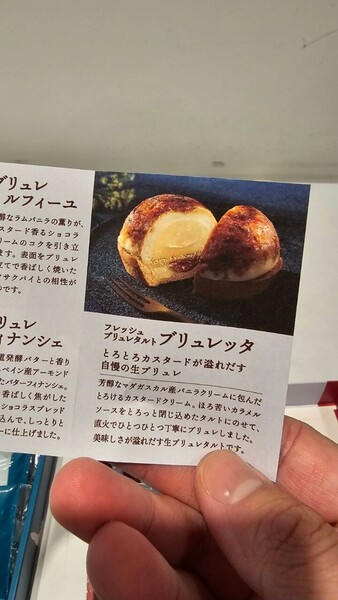 ブリュレ
ルフィーユ
醇なラムバニラの薫りが、
スタード香るショコラ
リームのコクを引き立
ます。表面をブリュレ
立てで香ばしく焼いた
サクパイとの相性が
めです。
リュレ
ィナンシェ
道発酵バターと香り
ペイン産アーモンド
たバターフィナンシェ。
香ばしく焦がした
ショコラスブレッド
込んで、しっとりと
ーに仕上げました。
フレッシュ
ブリュレタルト ブリュレッタ
とろとろカスタードが溢れだす
自慢の生ブリュレ
芳醇なマダガスカル産バニラクリームに包んだ
とろけるカスタードクリーム。ほろ苦いカラメル
ソースをとろっと閉じ込めたタルトにのせて、
直火でひとつひとつ丁寧にブリュレしました。
美味しさが溢れだす生ブリュレタルトです。